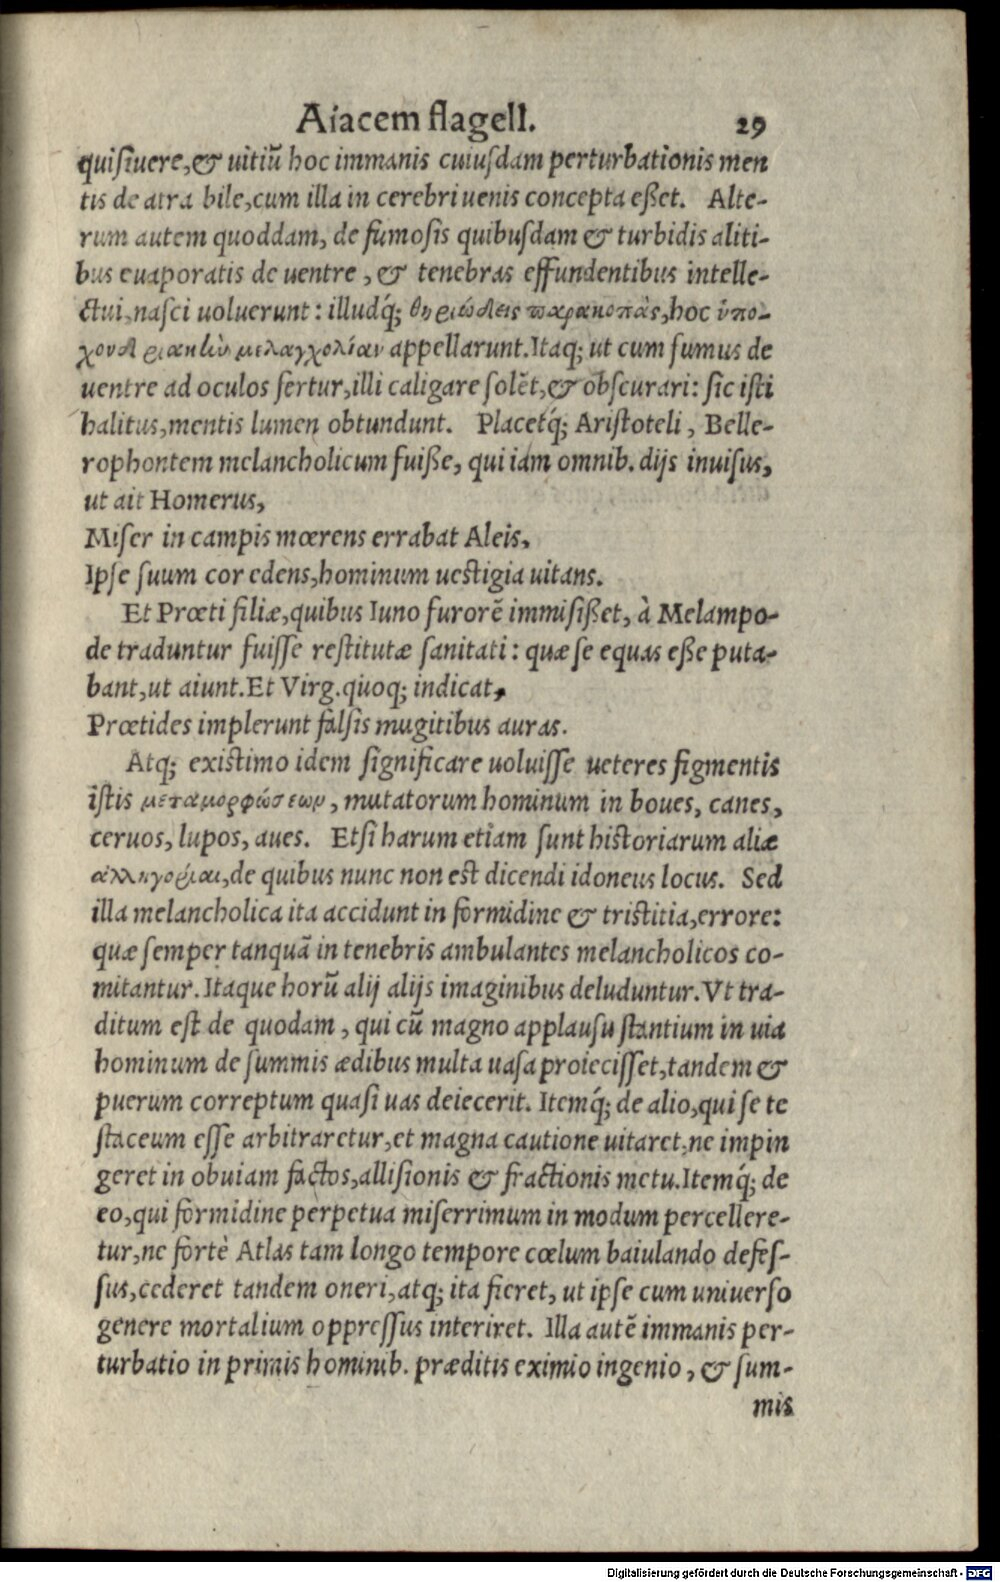 Aiacem flagell. 29
quisiuere, & uitiũ hoc immanis cuiusdam perturbationis men
tis de atra bile, cum illa in cerebri uenis concepta eßet. Alte-
rum autem quoddam, de fumosis quibusdam & turbidis aliti-
bus euaporatis de uentre, & tenebras effundentibus intelle-
ctui, nasci uoluerunt: illudq́; θηριώδεις παρακοπὰς, hoc ὑπο-
χονδριακὴν μελαγχολίαν appellarunt. Itaq; ut cum fumus de
uentre ad oculos fertur, illi caligare solẽt, & obscurari: sic isti
halitus, mentis lumen obtundunt. Placetq́; Aristoteli, Belle-
rophontem melancholicum fuiße, qui iam omnib. dijs inuisus,
ut ait Homerus,
Miser in campis mœrens errabat Aleis,
Ipse suum cor edens, hominum uestigia uitans.
Et Prœti filiæ, quibus Iuno furorẽ immisißet, à Melampo-
de traduntur fuisse restitutæ sanitati: quæ se equas eße puta-
bant, ut aiunt. Et Virg. quoq; indicat,
Prœtides implerunt falsis mugitibus auras.
Atq; existimo idem significare uoluisse ueteres figmentis
istis μεταμορφώσεων, mutatorum hominum in boues, canes,
ceruos, lupos, aues. Etsi harum etiam sunt historiarum aliæ
ἀλληγορίαι, de quibus nunc non est dicendi idoneus locus. Sed
illa melancholica ita accidunt in formidine & tristitia, errore:
quæ semper tanquã in tenebris ambulantes melancholicos co-
mitantur. Itaque horũ alij alijs imaginibus deluduntur. Vt tra-
ditum est de quodam, qui cũ magno applausu stantium in uia
hominum de summis ædibus multa uasa proiecisset, tandem &
puerum correptum quasi uas deiecerit. Itemq́; de alio, qui se te
staceum esse arbitraretur, et magna cautione uitaret, ne impin
geret in obuiam factos, allisionis & fractionis metu. Itemq́; de
eo, qui formidine perpetua miserrimum in modum percellere-
tur, ne fortè Atlas tam longo tempore cœlum baiulando defes-
sus, cederet tandem oneri, atq; ita fieret, ut ipse cum uniuerso
genere mortalium oppressus interiret. Illa autẽ immanis per-
turbatio in primis hominib. præditis eximio ingenio, & sum-
mis
Digitalisierung gefördert durch die Deutsche Forschungsgemeinschaft - DFG